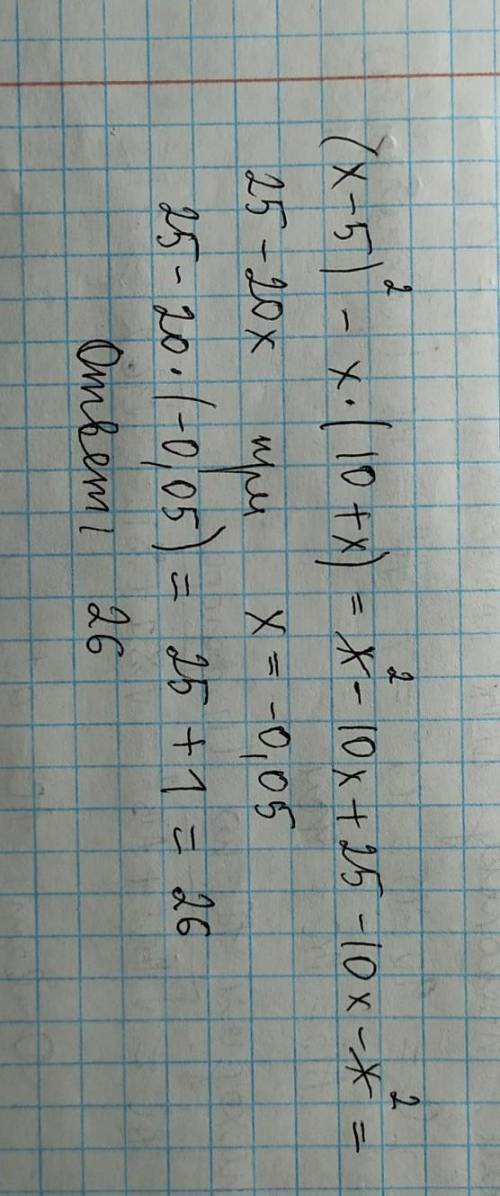 (x-5)² - x·(10+x) = x² - 10x + 25 - 10x - x² =
25 - 20x при x = -0,05
25 - 20·(-0,05) = 25 + 1 = 26
Ответ: 26